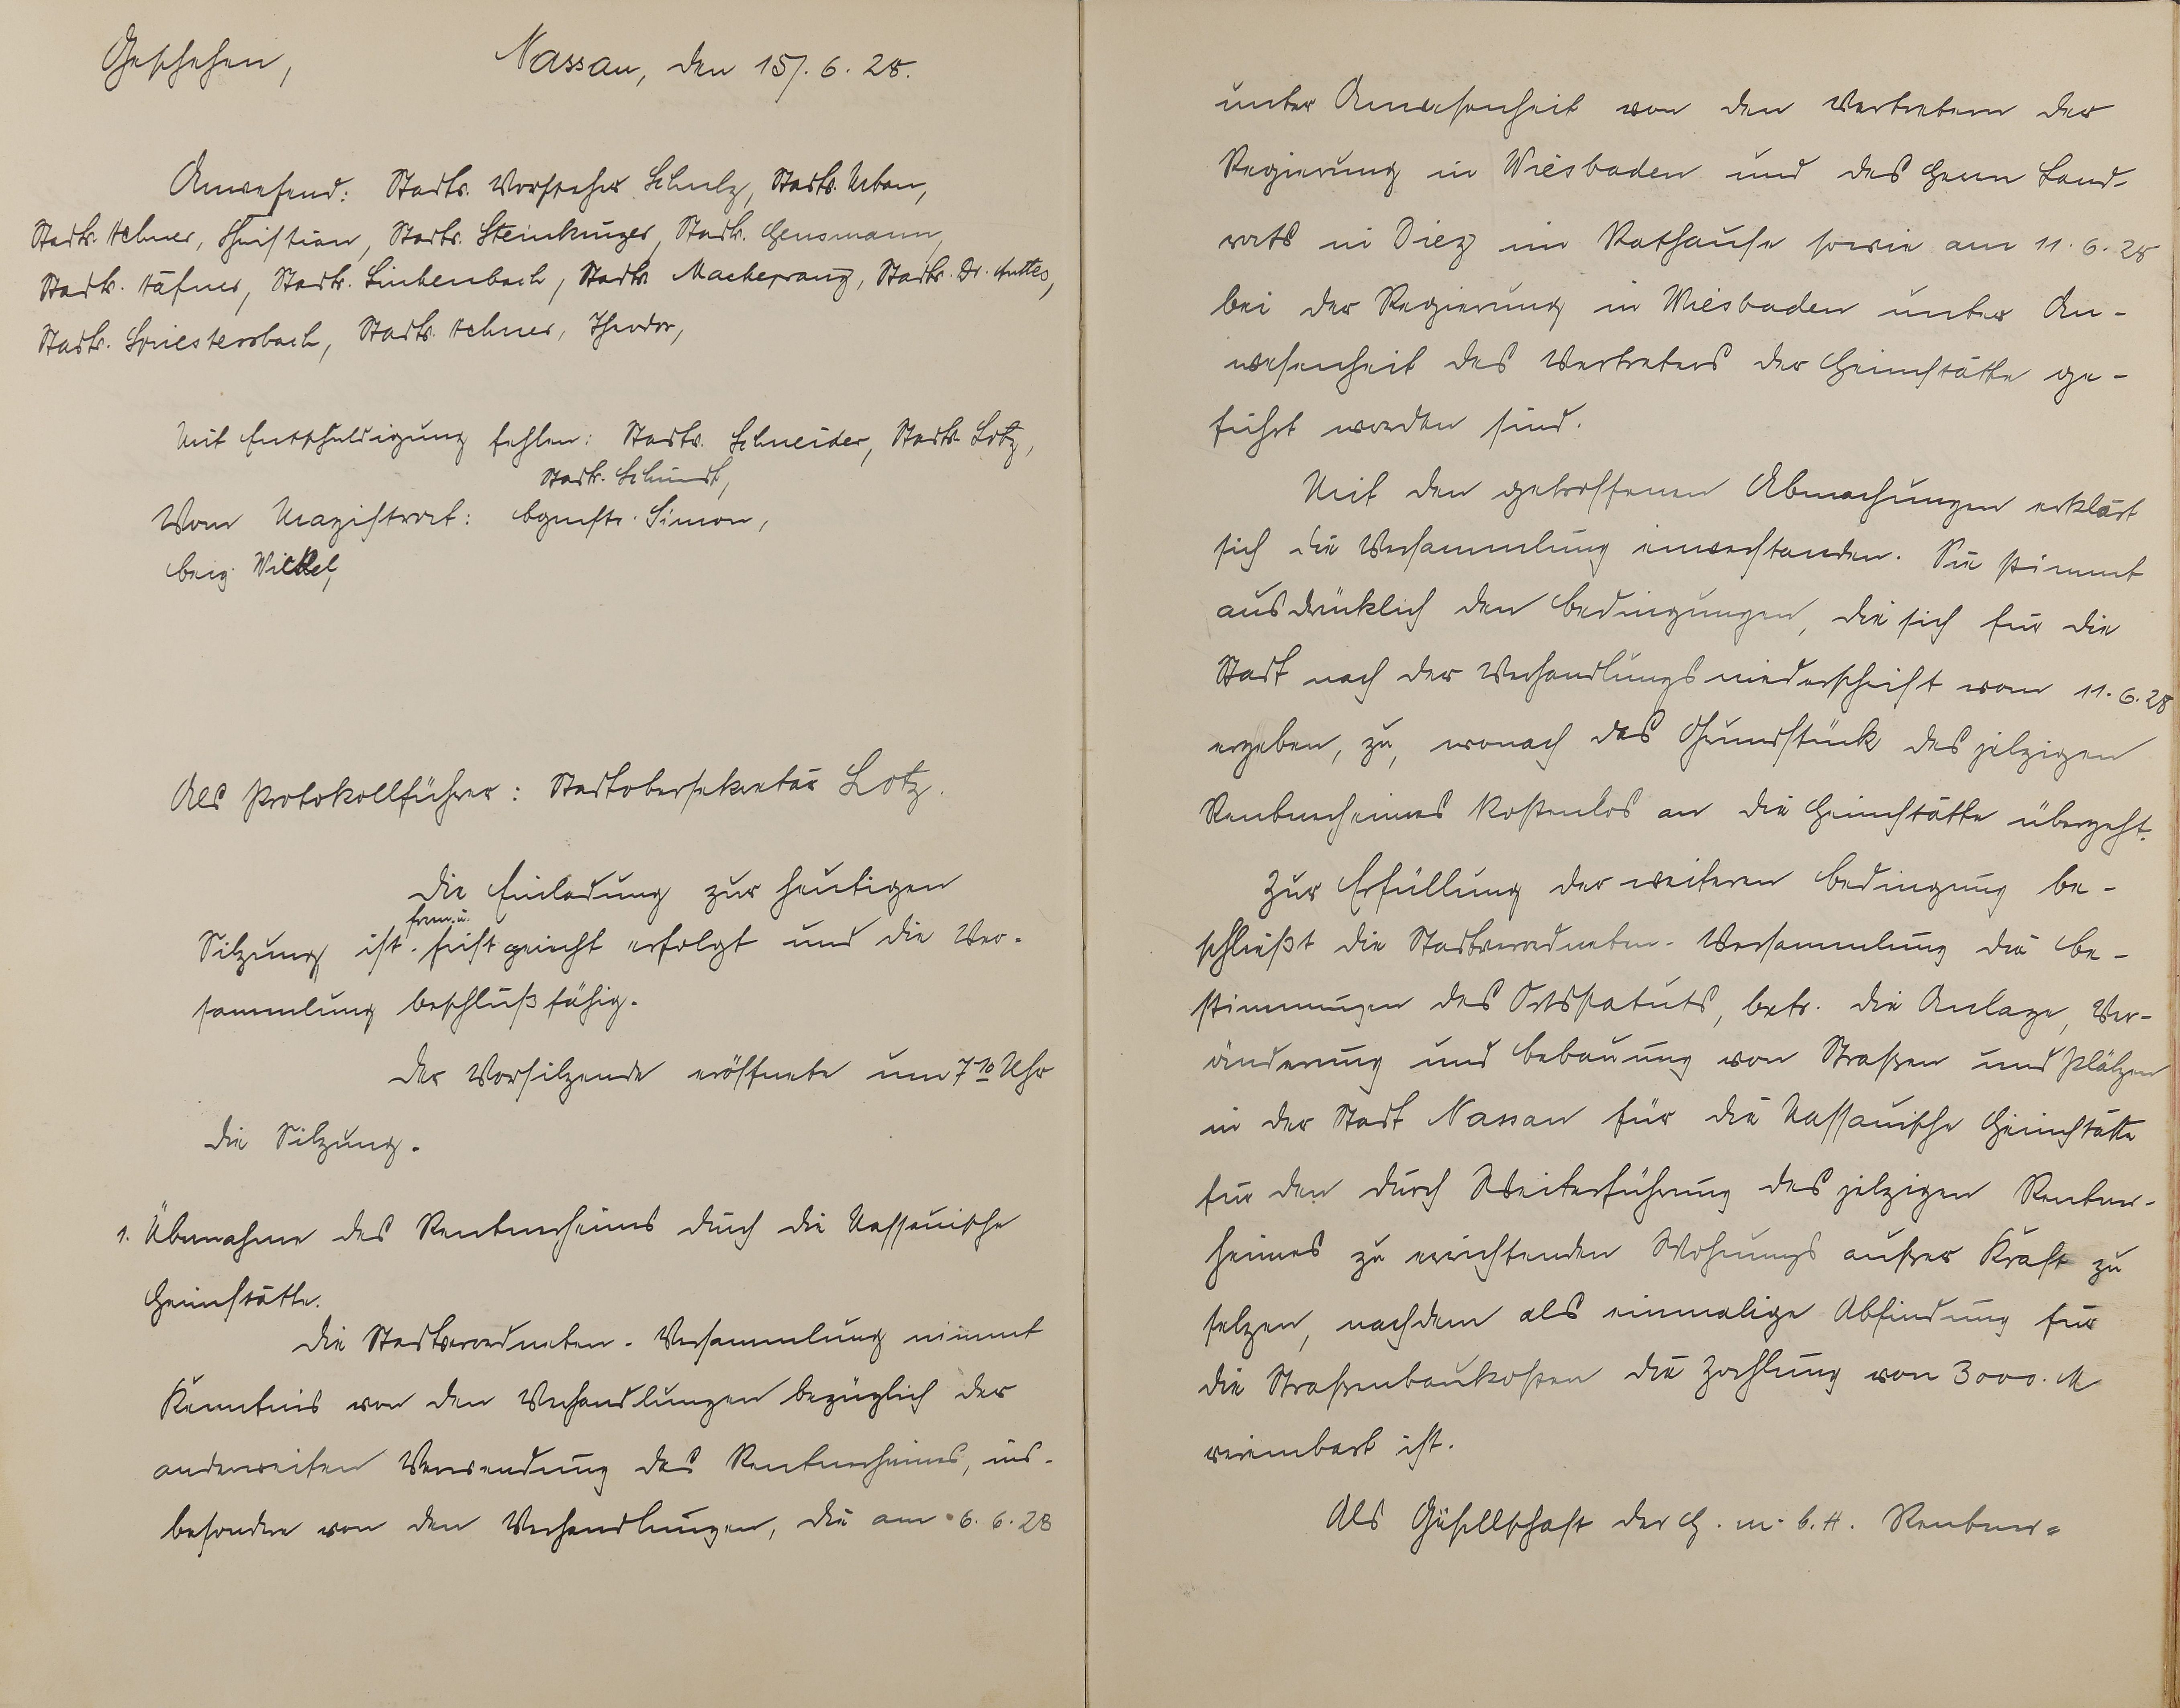 Geschehen, Nassau, den 15/. 6. 28.
Anwesend: Stadtv. Vorsteher Schulz, Stadtv. Urban,
Stadtv. Hehner, Christian, Stadtv. Steinkrüger, Stadtv. Heusmann,
Stadtv. Häfner, Stadtv. Linkenbach, Stadtv. Macheprang, Stadtv. Dr. Anthes,
Stadtv. Spriestersbach, Stadtv. Hehner, Theodor,
Mit Entschuldigung fehlen: Stadtv. Schneider, Stadtv. Lotz,
Stadtv. Schmidt,
Vom Magistrat: Bgmstr. Simon,
Beig. Wickel,
Als Protokollführer: Stadtobersekretär Lotz.
Die Einladung zur heutigen
form. u.
Sitzung ist fristgerecht erfolgt und die Ver-
sammlung beschlußfähig.
Der Vorsitzende eröffnete um 7 10 Uhr
die Sitzung.
1. Übernahme des Rentnerheims durch die Nassauische
Heimstätte.
Die Stadtverordneten-Versammlung nimmt
Kenntnis von den Verhandlungen bezüglich der
anderweiten Verwendung des Rentnerheimes, ins-
besondere von den Verhandlungen, die am 6. 6. 28
unter Anwesenheit von den Vertretern der
Regierung in Wiesbaden und des Herrn Land-
rats in Diez im Rathause sowie am 11. 6. 28
bei der Regierung in Wiesbaden unter An-
wesenheit des Vertreters der Heimstätte ge-
führt worden sind.
Mit den getroffenen Abmachungen erklärt
sich die Versammlung einverstanden. Sie stimmt
ausdrücklich den Bedingungen, die sich für die
Stadt nach der Verhandlungsniederschrift vom 11. 6. 28
ergeben, zu, wonach das Grundstück des jetzigen
Rentnerheimes kostenlos an die Heimstätte übergeht.
Zur Erfüllung der weiteren Bedingung be-
schließt die Stadtverordneten-Versammlung die Be-
stimmungen des Ortsstatuts, betr. die Anlage, Ver-
änderung und Bebauung von Straßen und Plätzen
in der Stadt Nassau für die Nassauische Heimstätte
für den durch Weiterführung des jetzigen Rentner-
heimes zu errichtenden Wohnungs außer Kraft zu
setzen, nachdem als einmalige Abfindung für
die Straßenbaukosten die Zahlung von 3000. M
vereinbart ist.
Als Gesellschaft der G. m. b. H. Rentner=